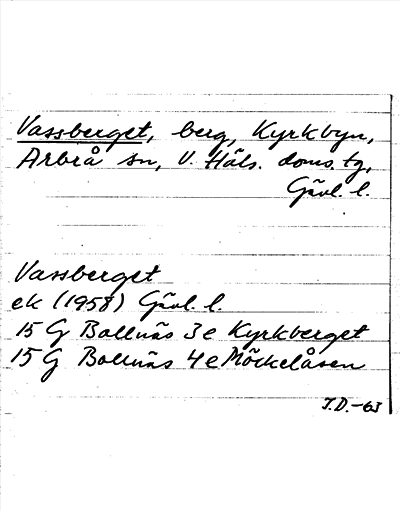 Vassberget, berg, Kyrkbyn,
Arbrå sn, V. Häls. doms. tg,
Gävl. l.
Vassberget
ek (1958) Gävl. l.
15 G Bollnäs 3 e Kyrkberget
15 G Bollnäs 4 e Möckelåsen
I.D.-63